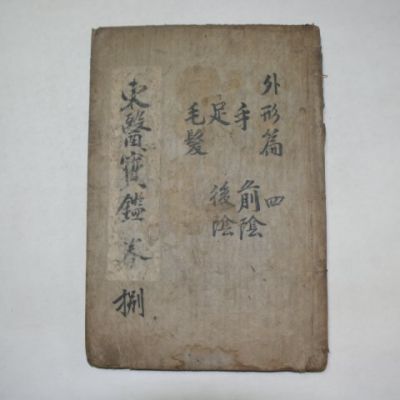 外形篇 四
手 前陰
足 後陰
毛髮
東醫寶鑑 卷 捌